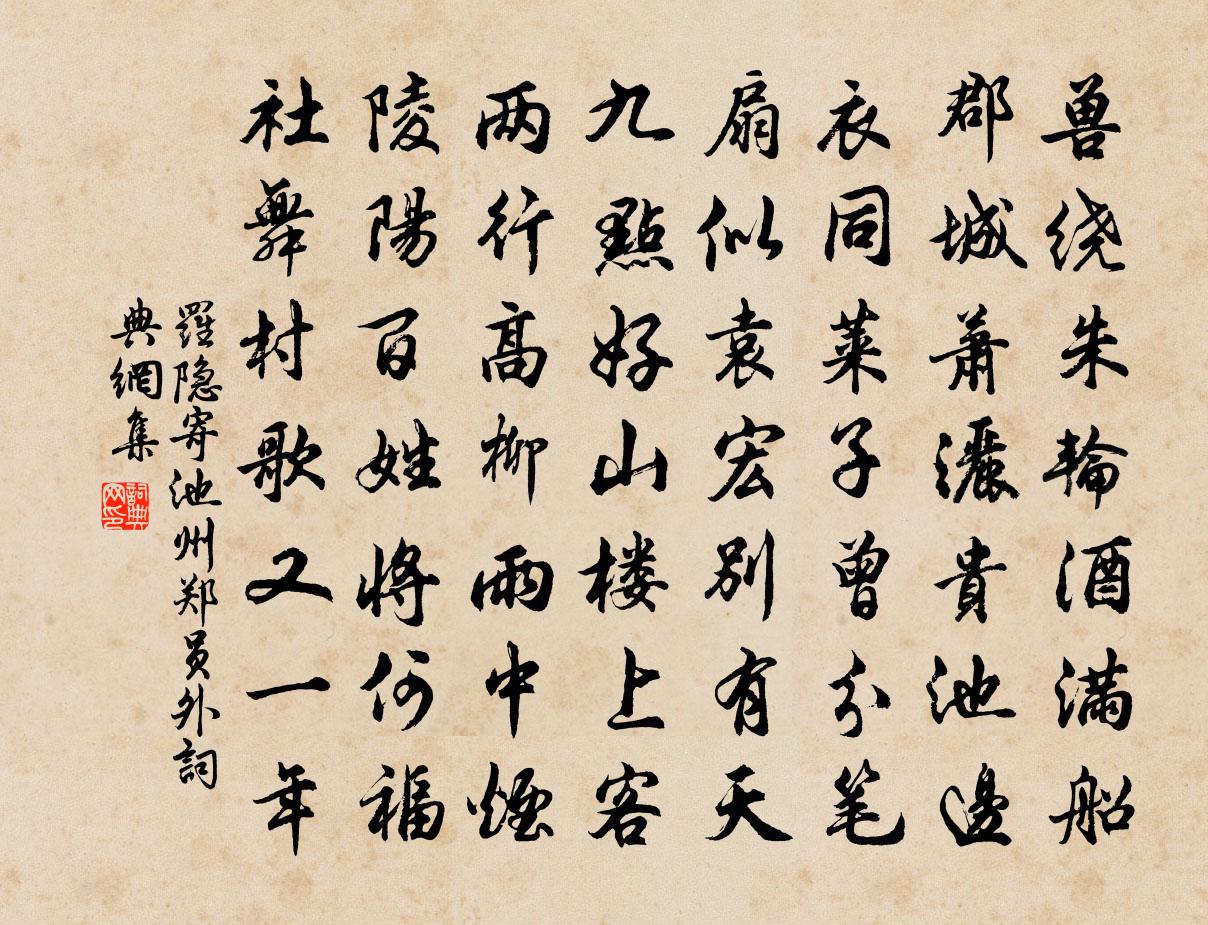 兽绕朱輪酒满船
郡城萧灑貴池邊
衣同莱子曾分笔
扇似袁宏别有天
九點好山楼上客
两行高柳雨中煙
陵陽百姓将何福
社舞村歌又一年
羅隐寄池州郑员外詞
典網集
詞典
网印